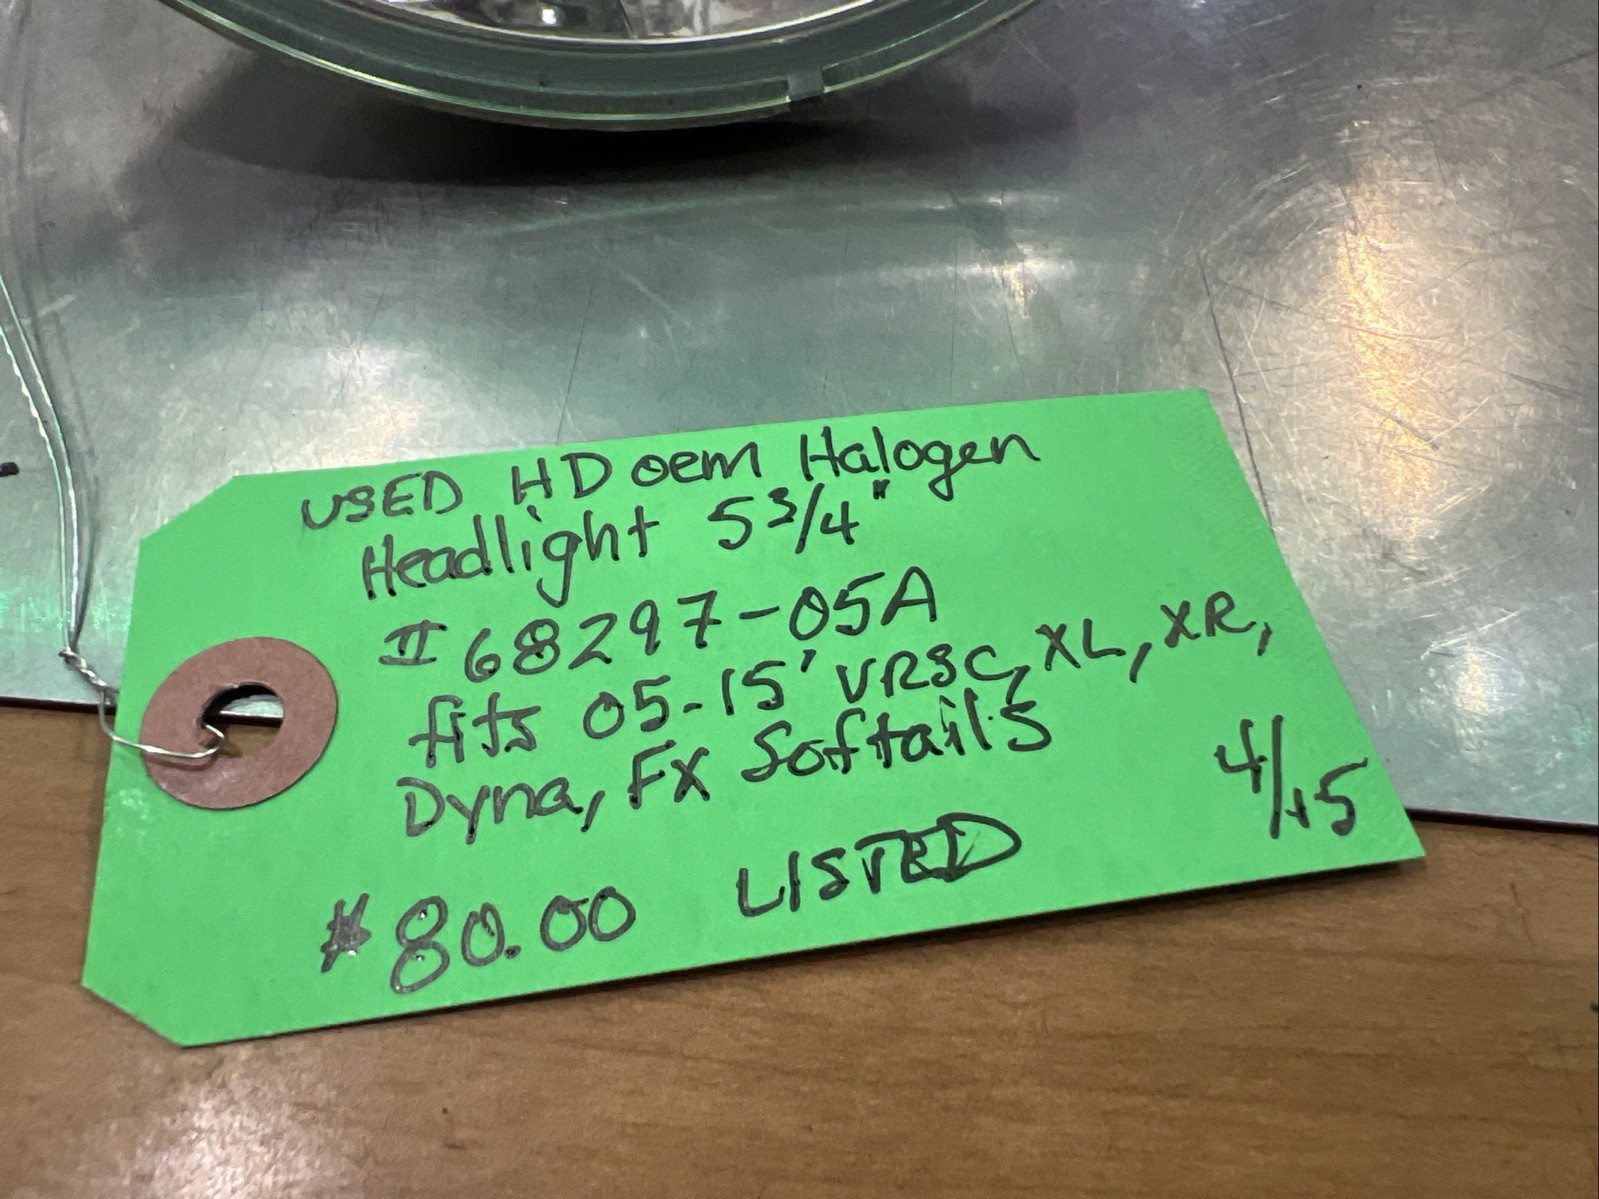 USED HD oem Halogen
Headlight 5 3/4"
# 68297-05A
fits 05-15' VRSC, XL, XR,
Dyna, FX Softails
4/15
$80.00 LISTED